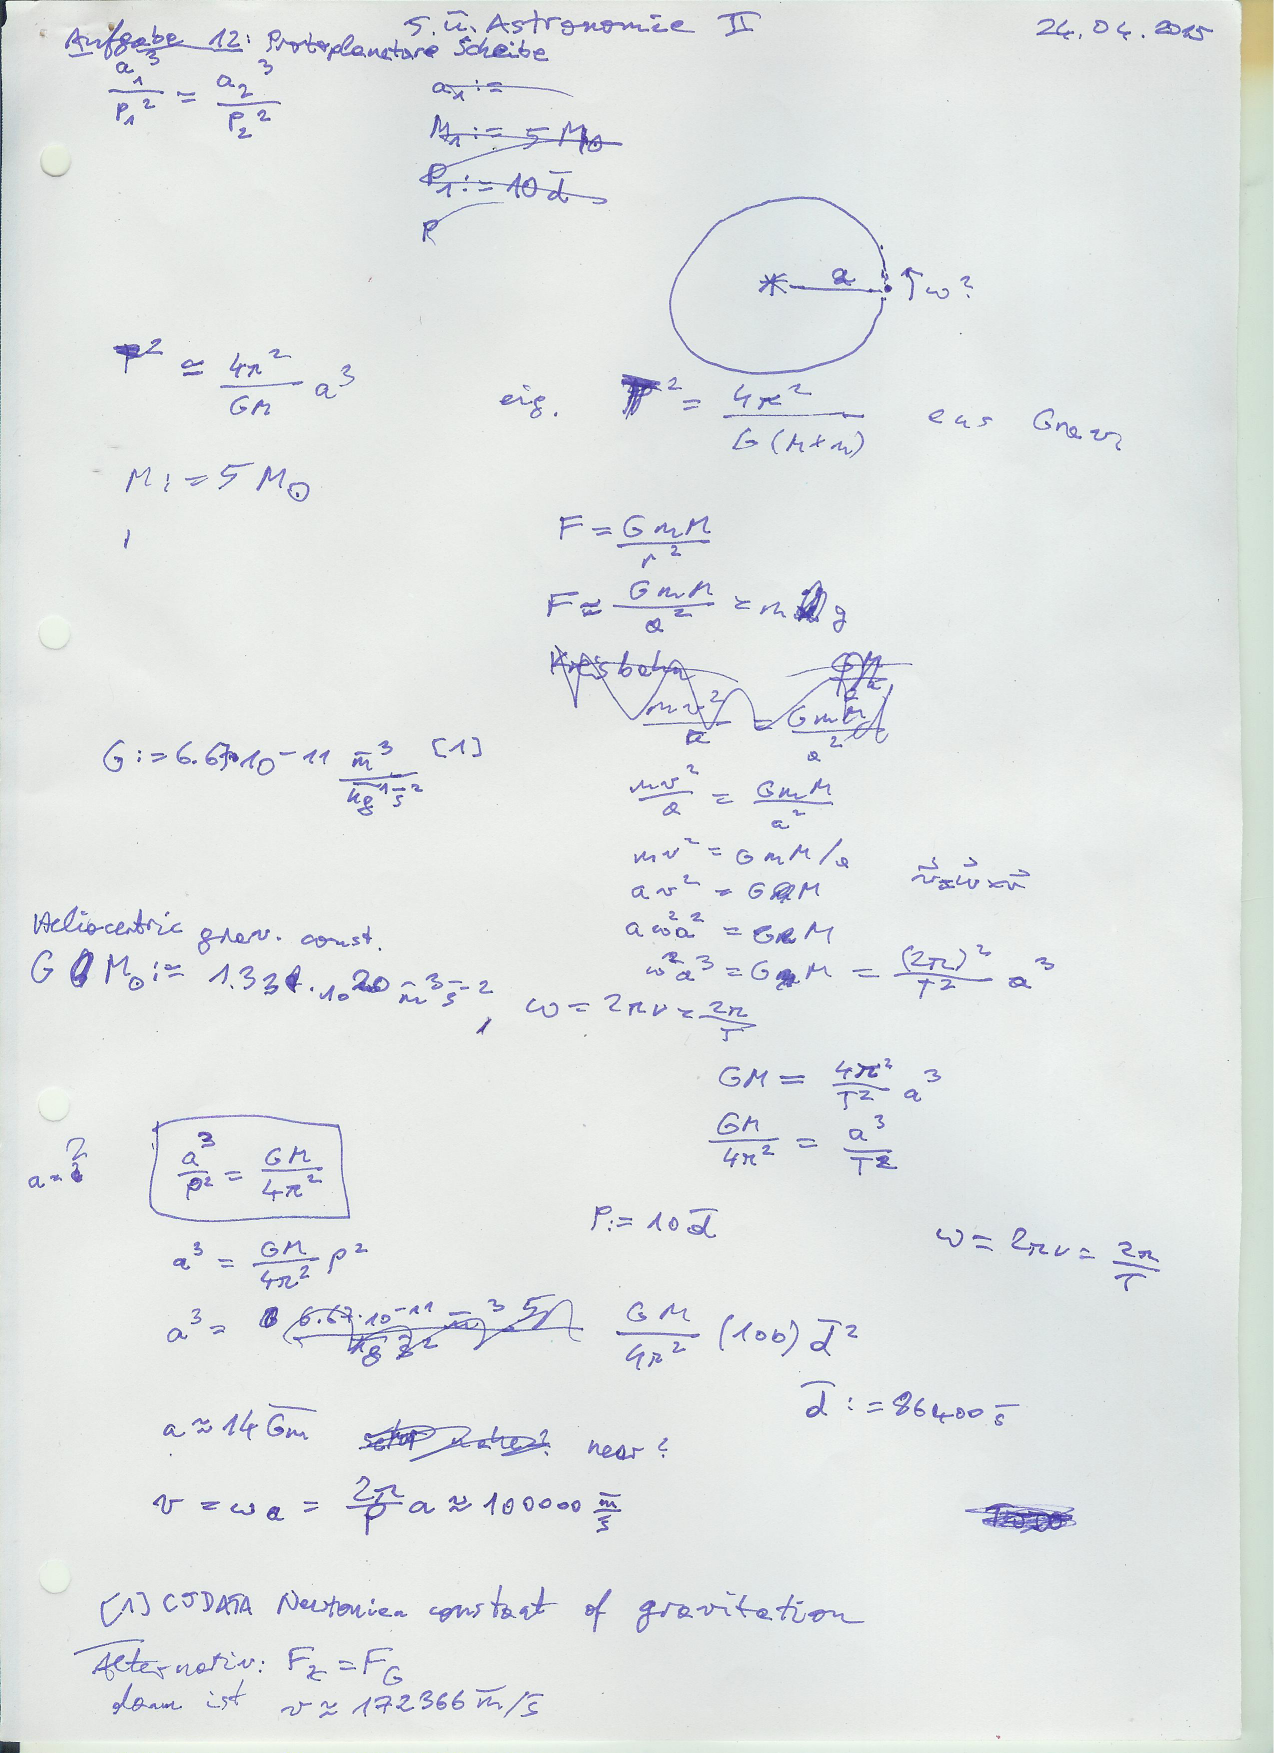 5. Ü. Astronomie II
24.04.2015
Aufgabe 12: Protoplanetare Scheibe
a₁³/P₁² = a₂³/P₂²
a₁ :=
M₁ := 5 M☉
P₁ := 10 d̄
P
a ↑ω?
T² ≃ 4π²/GM a³
eig. T² = 4π²/G(M+m) aus Grav
M := 5 M☉
F = GmM/r²
F ≈ GmM/a² = m g
Kreisbahn
mv²/ = GmM/a²
G := 6.67·10⁻¹¹ m̄³/kg¹s̄² [1]
mv²/a = GmM/a²
mv² = GmM/a
av² = GM
aω²a² = GM
ω²a³ = GM = (2π)²/T² a³
Heliocentric grav. const.
G M☉ := 1.334·10²⁰ m̄³s̄⁻², ω = 2πν = 2π/T
GM = 4π²/T² a³
GM/4π² = a³/T²
a = ?
a³/P² = GM/4π²
P := 10 d̄
ω = 2πν = 2π/T
a³ = GM/4π² P²
a³ = 6.67·10⁻¹¹ m̄³ 5 GM/4π² (100) d̄²
d̄ := 86400 s̄
a ≈ 14 Gm near?
v = ωa = 2π/P a ≈ 100000 m̄/s̄
[1] CODATA Newtonian constant of gravitation
Alternativ: F_z = F_G
dann ist v ≈ 172366 m̄/s̄